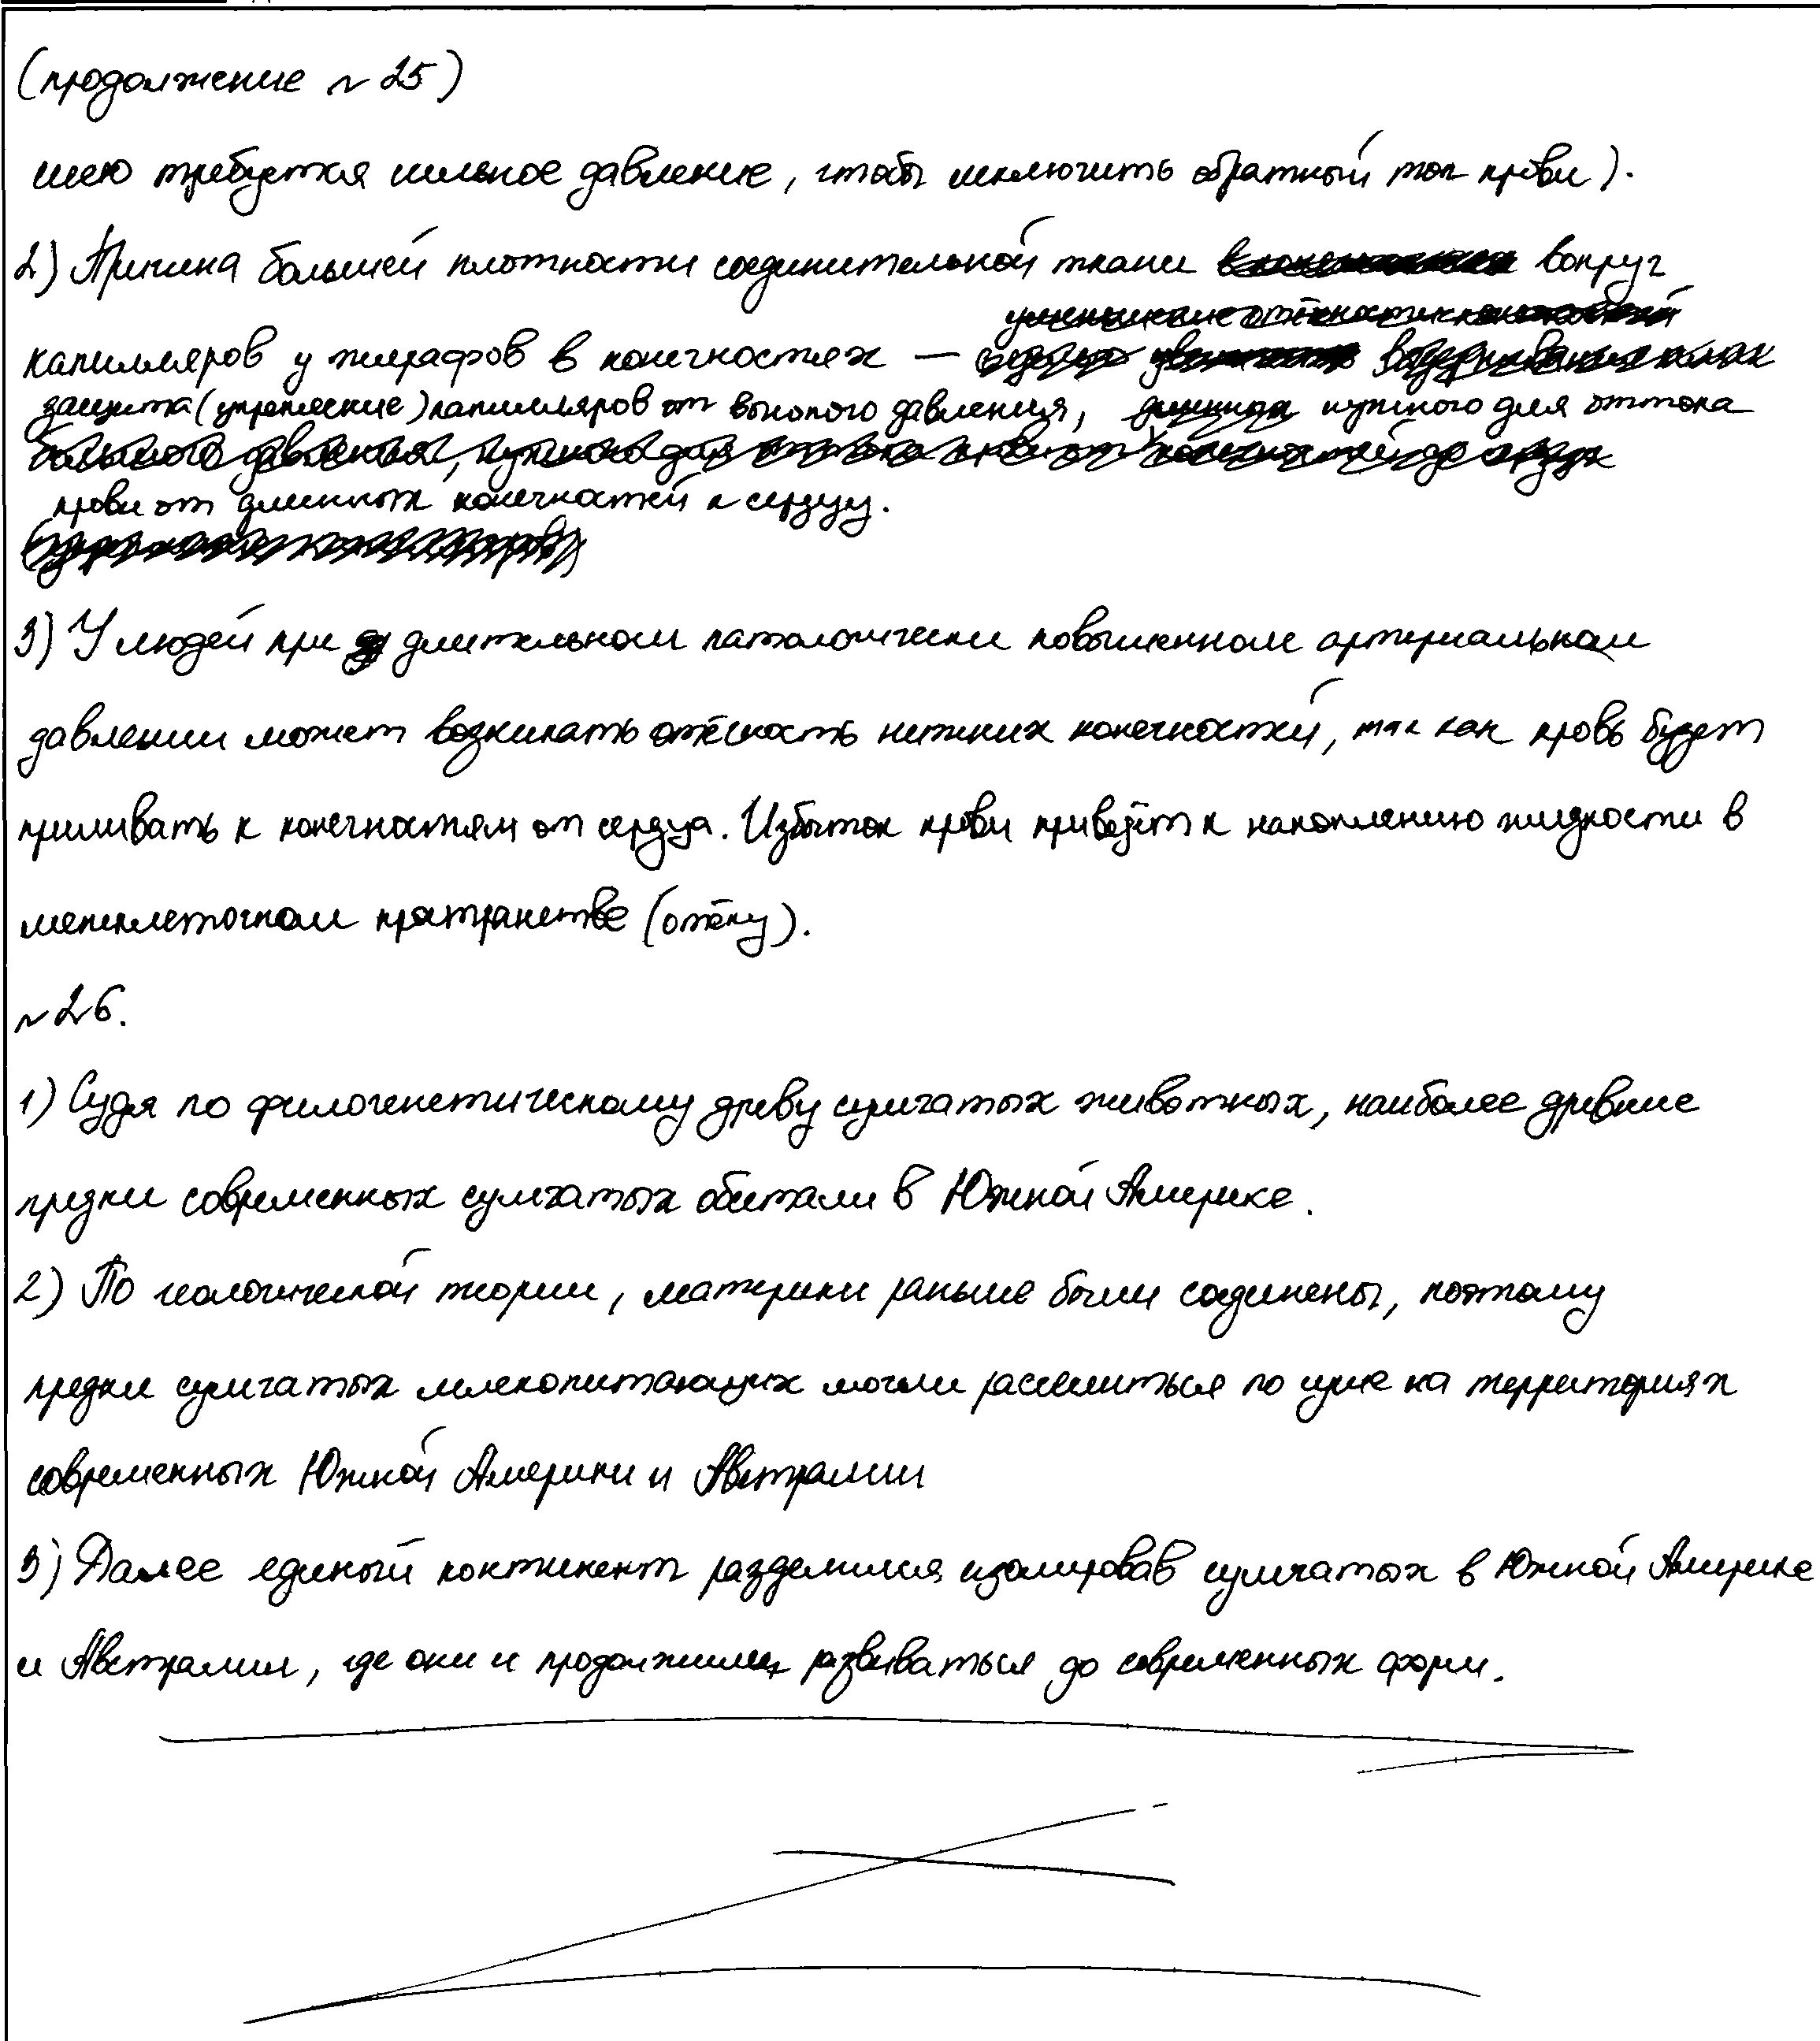 (продолжение № 25)
шею требуется сильное давление, чтобы исключить обратный ток крови).
2) Причина большей плотности соединительной ткани вокруг
капилляров у жирафов в конечностях —
защита (укрепление) капилляров от высокого давления, нужного для оттока
крови от длинных конечностей к сердцу.
3) У людей при длительном патологически повышенном артериальном
давлении может возникать отёчность нижних конечностей, так как кровь будет
приливать к конечностям от сердца. Избыток крови приведёт к накоплению жидкости в
межклеточном пространстве (отёку).
№ 26.
1) Судя по филогенетическому древу сумчатых животных, наиболее древние
предки современных сумчатых обитали в Южной Америке.
2) По геологической теории, материки раньше были соединены, поэтому
предки сумчатых млекопитающих могли расселиться по суше на территориях
современных Южной Америки и Австралии
3) Далее единый континент разделился, изолировав сумчатых в Южной Америке
и Австралии, где они и продолжили развиваться до современных форм.